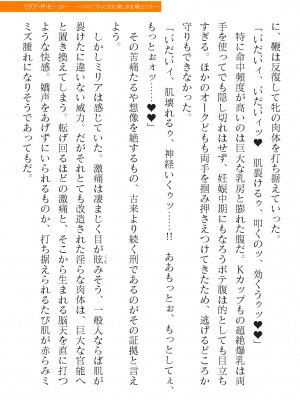 に、鞭は反復して牝の肉体を打ち据えていった。
「いだいイ、いだいィッ♥　肌裂けるぅ、叩くのッ、効くうゥッ♥♥」
特に命中頻度が高いのは巨大な乳房と膨れた腹だ。Ｋカップもの超絶爆乳は両
手を使ってでも隠し切れはせず、妊娠中期にもなろうボテ腹は的としても目立ち
すぎる。ほかのオークどもも両手を掴み押さえつけてきたため、逃げるどころか
守りもできなかった。
「いだいイ、肌壊れるぅ、神経いくゥッ……!!　ああもっとぉ、もっとしてぇ、
もっとぉォッ……♥♥」
その苦痛たるや想像を絶するもの、古来より続く刑であるのがその証拠と言え
よう。
しかしミリアは感じていた。激痛は凄まじく目が眩みそう、一般人ならば肌が
裂けたに違いない威力、だがそれとても改造された淫らな肉体は、巨大な官能へ
と置き換えてしまう。転げ回るほどの激痛と、そこから生まれる脳天を直に打つ
ような快感。嬌声をあげずにいられるものか、打ち据えられるたび肌が赤らみミ
ミズ腫れになりそうであってもだ。